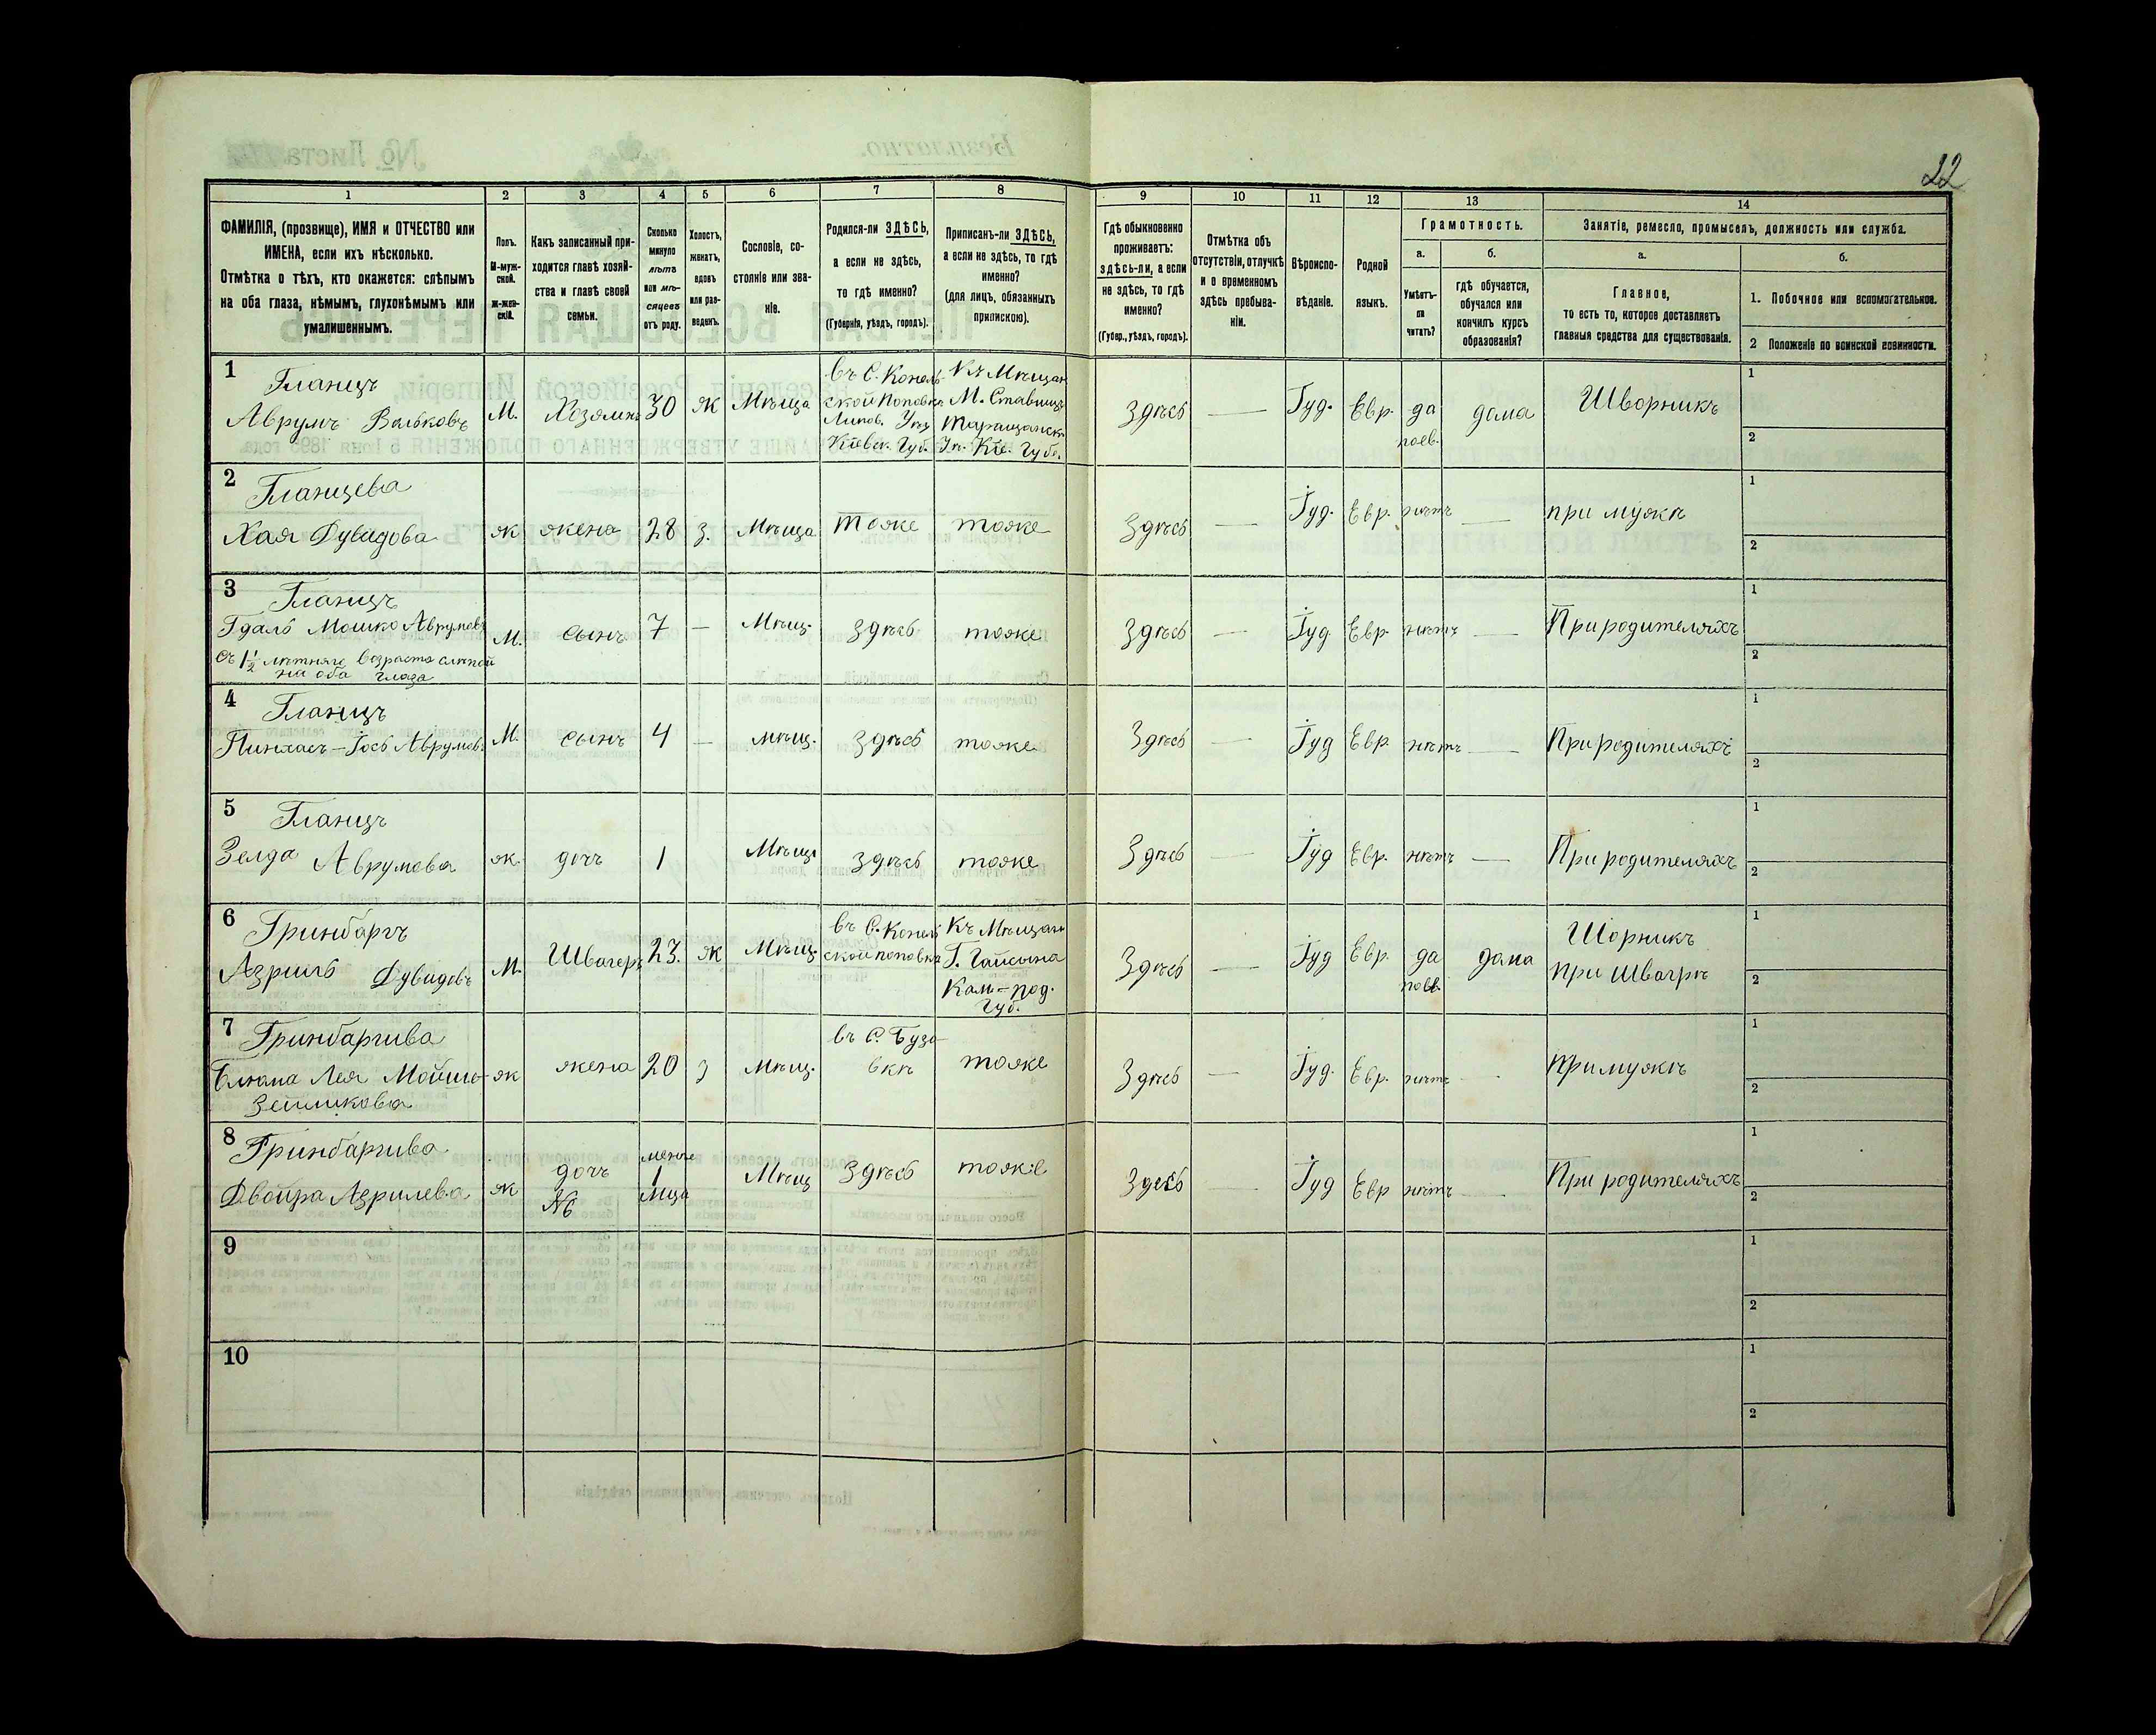 22
1 2 3 4 5 6 7 8 9 10 11 12 13 14
ФАМИЛІЯ, (прозвище), ИМЯ и ОТЧЕСТВО или
ИМЕНА, если ихъ нѣсколько.
Отмѣтка о тѣхъ, кто окажется: слѣпымъ
на оба глаза, нѣмымъ, глухонѣмымъ или
умалишеннымъ.
Полъ.
М-муж-
ской.
Ж-жен-
скій.
Какъ записанный при-
ходится главѣ хозяй-
ства и главѣ своей
семьи.
Сколько
минуло
лѣтъ
или мѣ-
сяцевъ
отъ роду.
Холостъ,
женатъ,
вдовъ
или раз-
веденъ.
Сословіе, со-
стояніе или зва-
ніе.
Родился-ли ЗДѢСЬ,
а если не здѣсь,
то гдѣ именно?
(Губернія, уѣздъ, городъ).
Приписанъ-ли ЗДѢСЬ,
а если не здѣсь, то гдѣ
именно?
(для лицъ, обязанныхъ
припискою).
Гдѣ обыкновенно
проживаетъ:
здѣсь-ли, а если
не здѣсь, то гдѣ
именно?
(Губер., уѣздъ, городъ).
Отмѣтка объ
отсутствіи, отлучкѣ
и о временномъ
здѣсь пребыва-
ніи.
Вѣроиспо-
вѣданіе.
Родной
языкъ.
Грамотность.
а.
Умѣетъ-
ли
читать?
б.
гдѣ обучается,
обучался или
кончилъ курсъ
образованія?
Занятіе, ремесло, промыселъ, должность или служба.
а.
Главное,
то есть то, которое доставляетъ
главныя средства для существованія.
б.
1. Побочное или вспомогательное.
2 Положеніе по воинской повинности.
1
Гланцъ
Аврумъ Вольковъ
М.
Хозяинъ
30
ж
Мѣща
въ С. Конель-
ской Поповкѣ
Липов. Уѣз
Кіевск. Губ.
Къ Мѣщан
М. Ставищ
Таращанск.
Уѣ. Кіе. Губ.
здѣсь
—
Іуд.
Евр.
да
поев.
дома
Шворникъ
1
2
2
Гланцева
Хая Дувидова
ж
жена
28
з.
Мѣща
тоже
тоже
здѣсь
—
Іуд.
Евр.
нѣтъ
—
при мужѣ
1
2
3
Гланцъ
Гдаль Мошко Аврумовъ
съ 1½ лѣтняго возраста слѣпой
на оба глаза
М.
сынъ
7
—
Мѣщ.
здѣсь
тоже
здѣсь
—
Іуд
Евр.
нѣтъ
—
При родителяхъ
1
2
4
Гланцъ
Пинхасъ-Іось Аврумов.
М.
сынъ
4
—
мѣщ.
здѣсь
тоже
здѣсь
—
Іуд
Евр.
нѣтъ
—
При родителяхъ
1
2
5
Гланцъ
Зелда Аврумова
ж.
дочь
1
Мѣщ
здѣсь
тоже
здѣсь
—
Іуд
Евр.
нѣтъ
—
При родителяхъ
1
2
6
Гринбаргъ
Азриль Дувидовъ
М.
Швагеръ
23.
ж
Мѣщ
въ С. Конель
ской поповкѣ
Къ Мѣщан
Г. Гайсина
Кам-под.
Губ.
здѣсь
—
Іуд
Евр.
да
поев.
дома
Шорникъ
при Швагрѣ
1
2
7
Гринбаргива
Блюма Лея Мойше-
Зейликова
ж
жена
20
з
мѣщ.
въ С. Буза-
вкѣ
тоже
здѣсь
—
Іуд.
Евр.
нѣтъ
—
При мужѣ
1
2
8
Гринбаргива
Двойра Азрилева
ж
дочь
№6
менѣе
1
Мца
Мѣщ
здѣсь
тоже
здесь
—
Іуд
Евр
нѣтъ
—
При родителяхъ
1
2
9
1
2
10
1
2